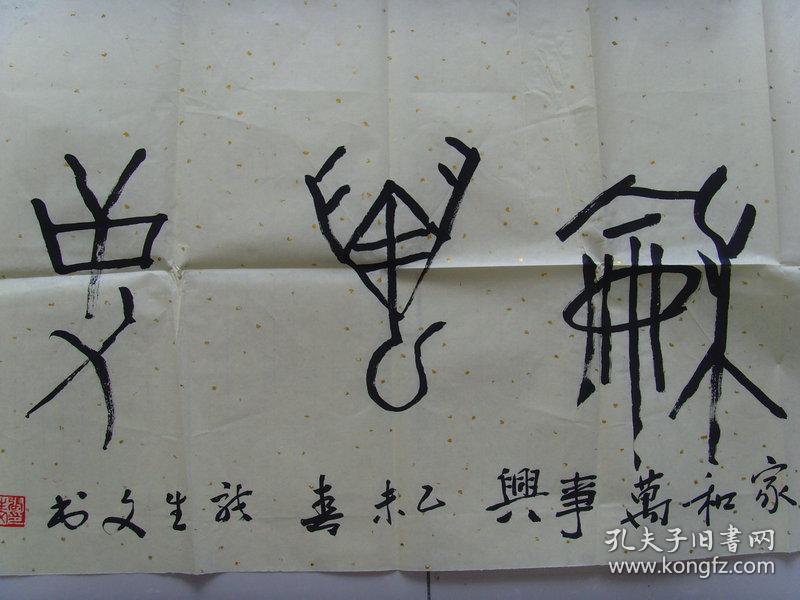 龢萬事
家和萬事興 乙未春 生文书
孔夫子旧书网
www.kongfz.com